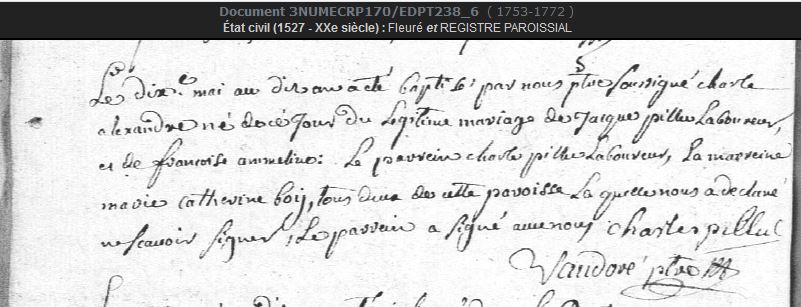 Document 3NUMECRP170/EDPT238_6 ( 1753-1772 )
État civil (1527 - XXe siècle) : Fleuré et REGISTRE PAROISSIAL
Le dix.e mai au dit an a été baptisé par nous ptre soussigné charle
alexandre né de cé jour du legitime mariage de Jacque pillu Laboureur,
et de francoise ammeline: Le parrein charle pillu Laboureur, La marreine
marie catherine boij, tous deux de cette paroisse La quelle nous a declaré
ne scavoir signer, Le parrein a signé avec nous charle pillu
Vandoré ptre